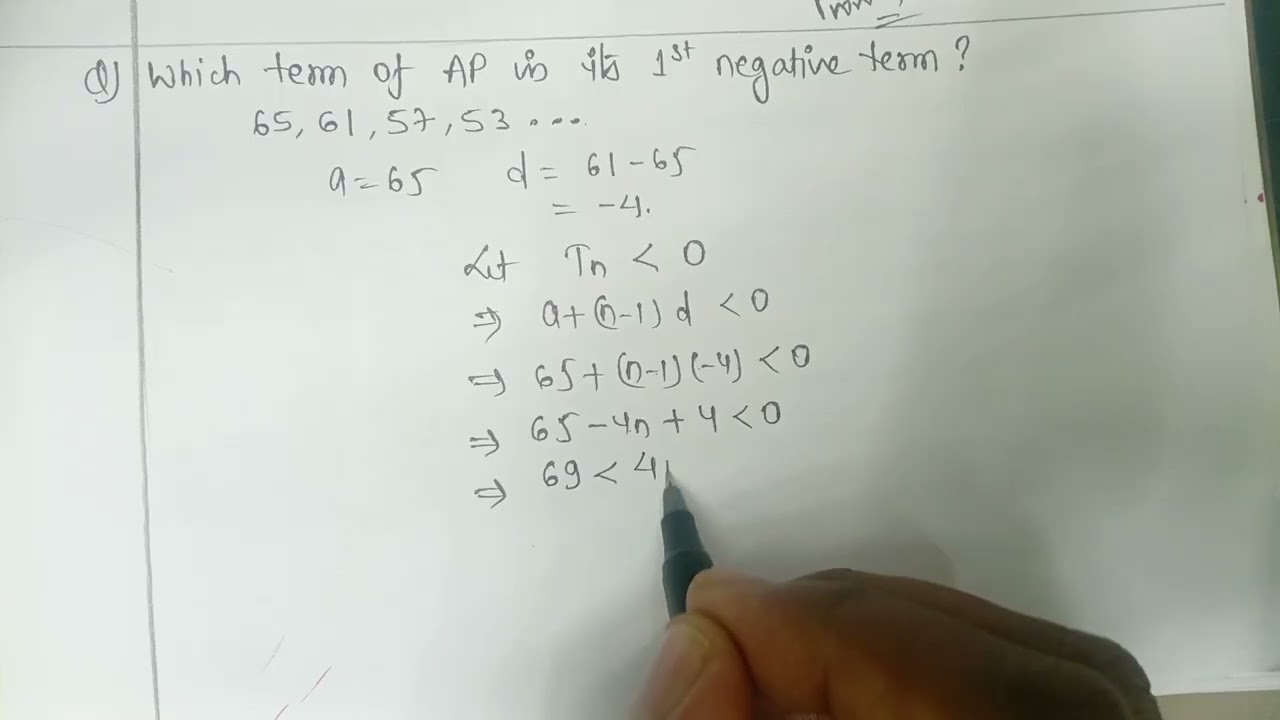 Q) Which term of AP is its 1st negative term?
65, 61, 57, 53 ....
a = 65 d = 61 - 65
= -4.
Let Tn < 0
⇒ a + (n-1) d < 0
⇒ 65 + (n-1) (-4) < 0
⇒ 65 - 4n + 4 < 0
⇒ 69 < 4